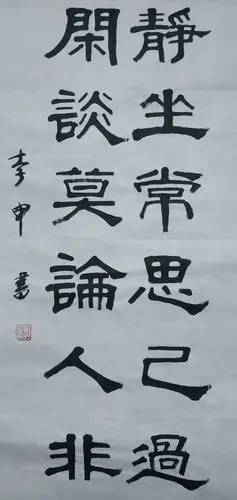 靜坐常思己過
閑談莫論人非
李申書